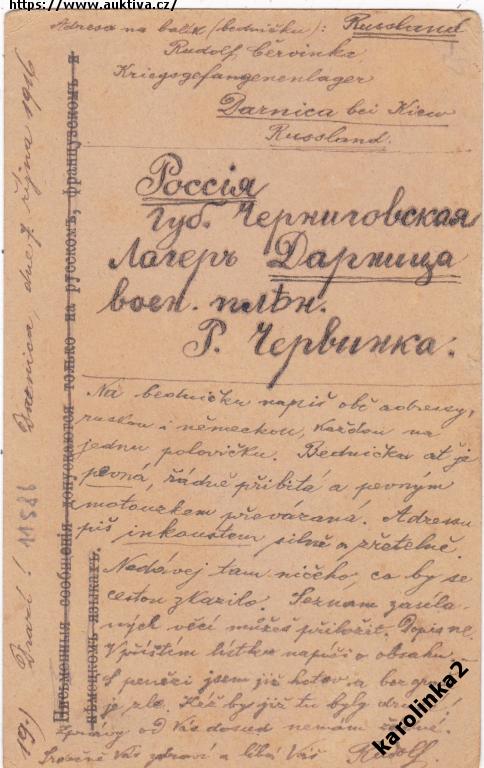 https://www.auktiva.cz/
Adresa na balík (bedničku): Russland
Rudolf Červinka
Kriegsgefangenenlager
Darnica bei Kiew
Russland.
Россія
Губ. Черниговская
Лагерь Дарница
воен. плѣн.
Р. Червинка.
Na bedničku napiš obě adressy,
ruskou i německou, každou na
jednu polovičku. Bednička ať je
pevná, řádně přibitá a pevným
motouzkem převázaná. Adressu
piš inkoustem silně a zřetelně.
Nedávej tam ničeho, co by se
cestou zkazilo. Seznam zasla-
ných věcí můžeš přiložit. Dopis ne.
V příštím lístku napiš o obsahu.
S penězi jsem již hotov a bez
je zle. Kéž by již tu byly
Zprávy od Vás dosud nemám
Srdečně Vás zdraví a líbá Váš
Rudolf.
19.) Drazí! Darnica, dne 7. října 1916
11586
Письменныя сообщенія допускаются только на русскомъ, французскомъ и
нѣмецкомъ языкахъ.
karolinka2